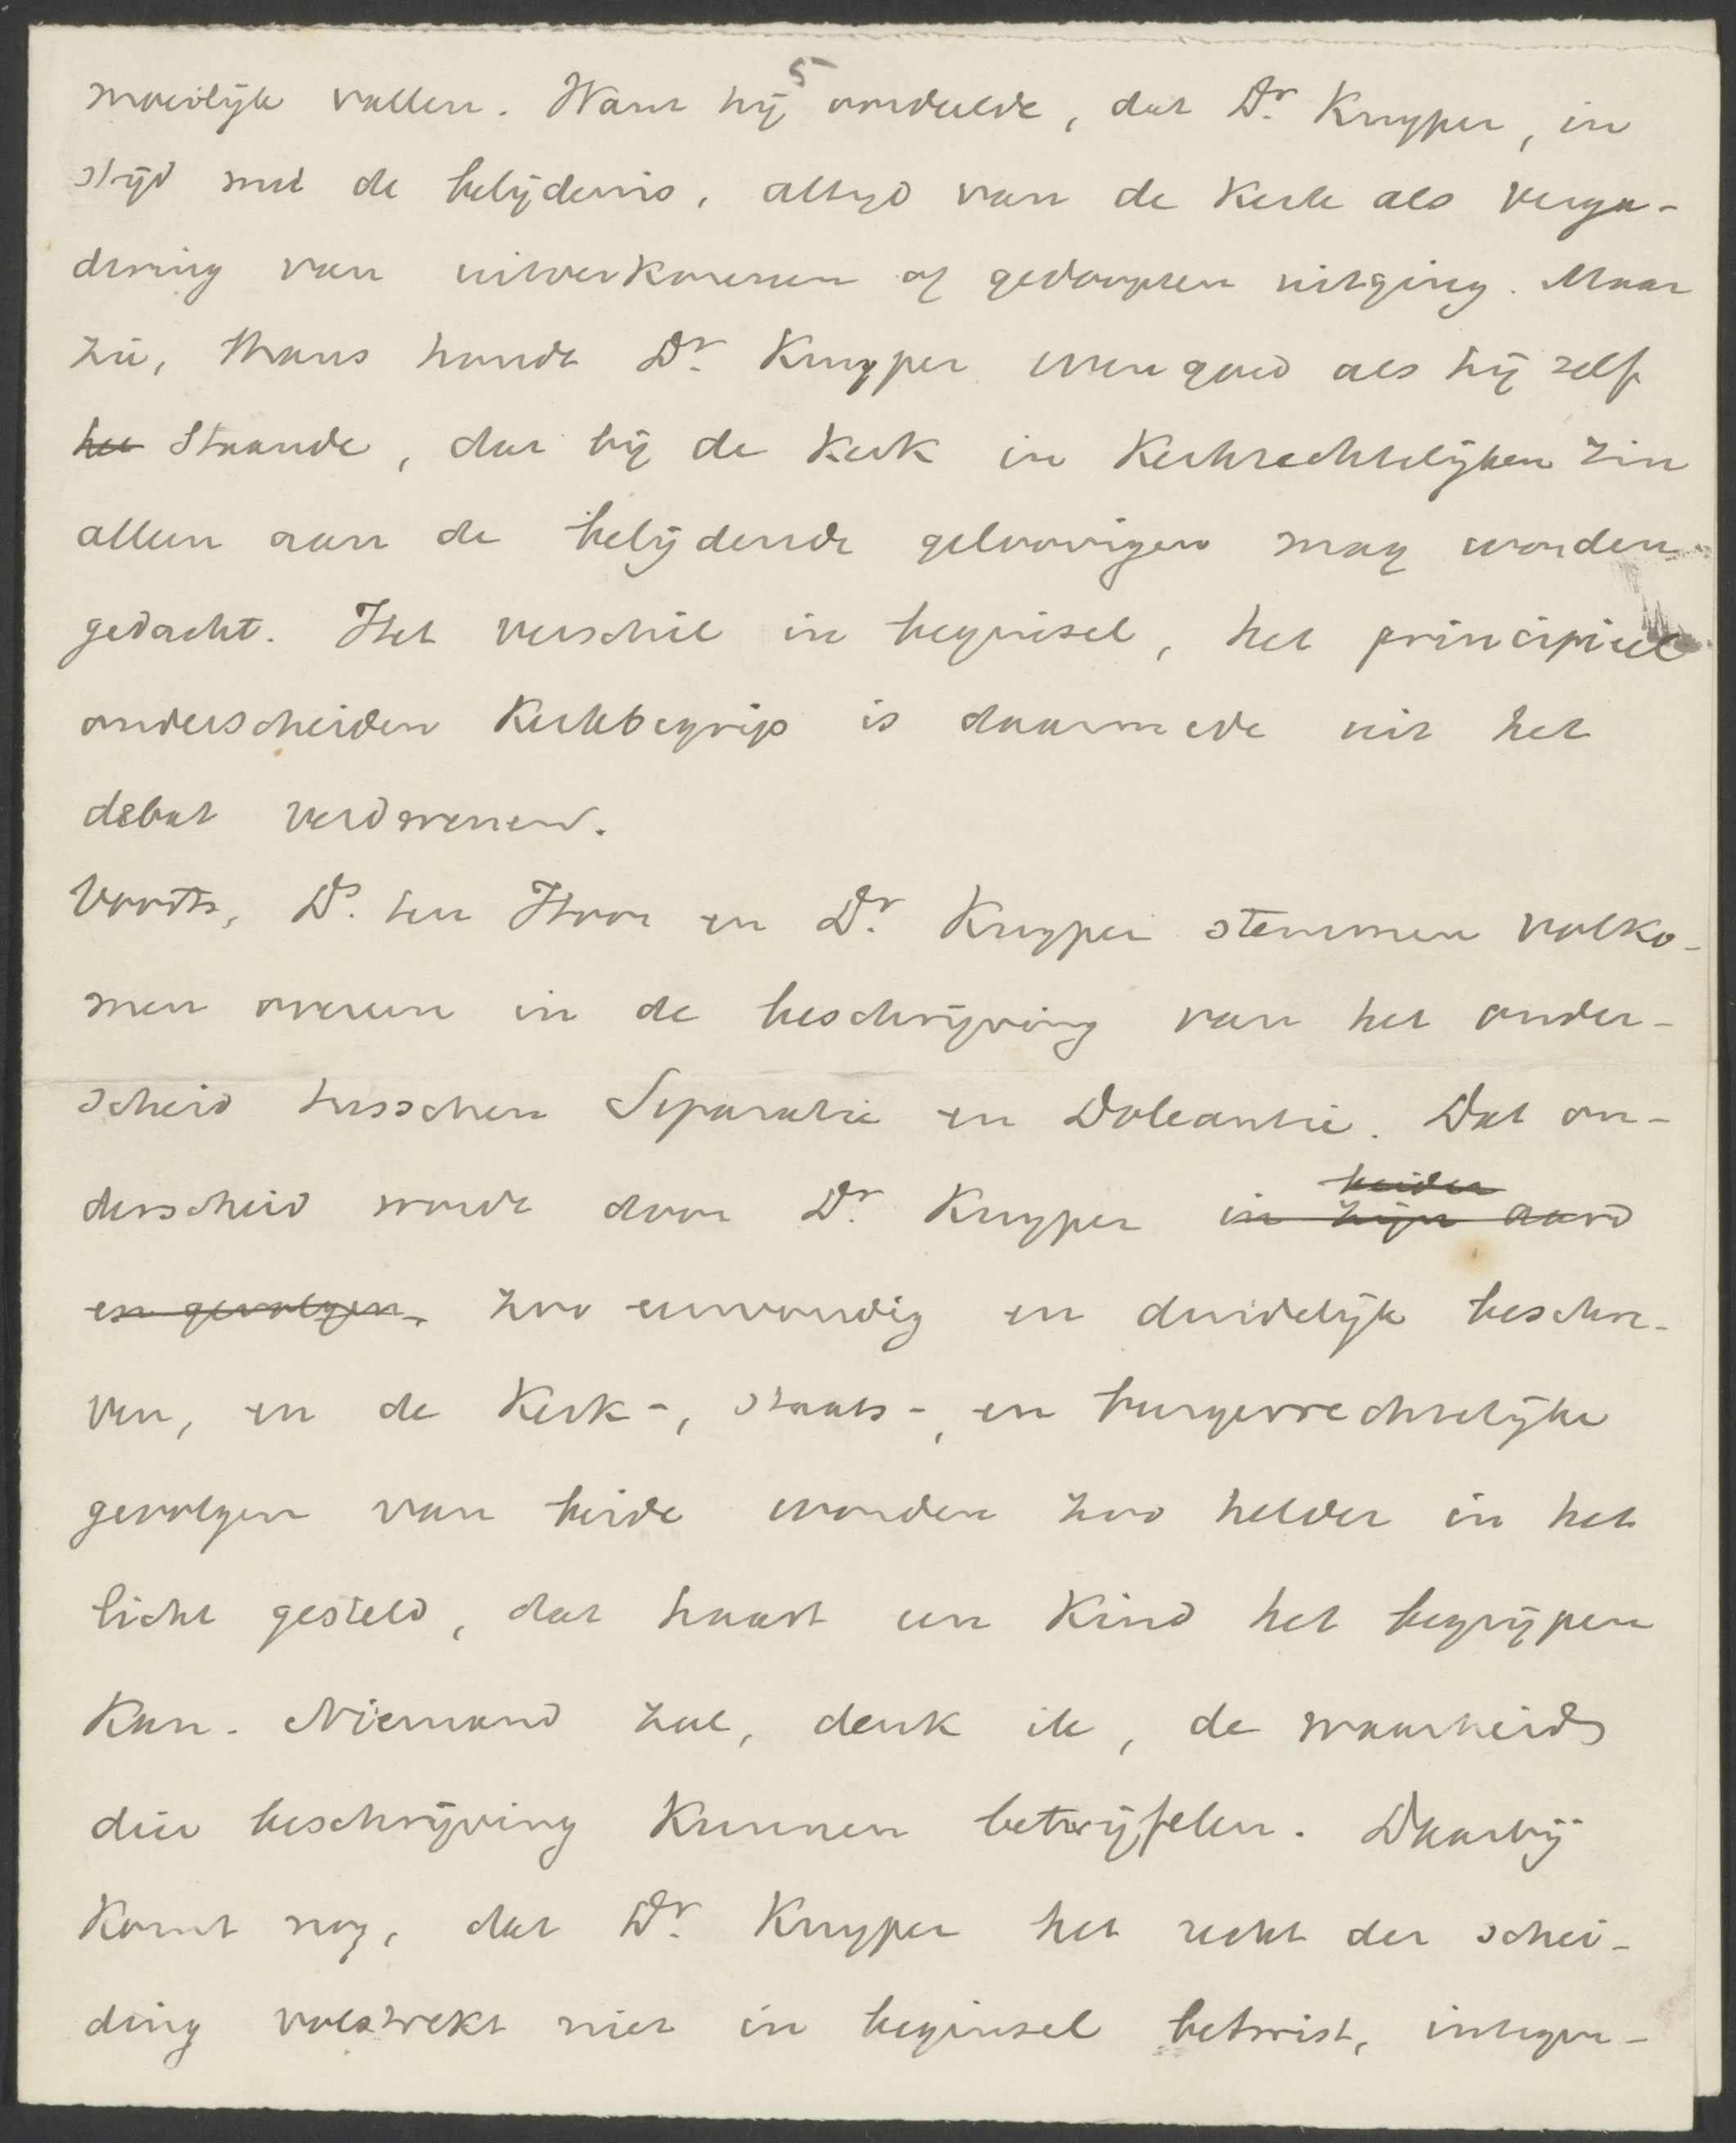 5
moeilijk vallen. Want hij oordeelde, dat Dr. Kuyper, in
strijd met de belijdenis, altijd van de kerk als verga-
dering van uitverkorenen of gedoopten uitging. Maar
zie, thans houdt Dr. Kuyper evengoed als hij zelf
het staande, dat bij de kerk in kerkrechtelijken zin
alleen aan de belijdende geloovigen mag worden
gedacht. Het verschil in beginsel, het principieel
onderscheiden kerkbegrip is daarmede uit het
debat verdwenen.
Voorts, Ds. ten Hoor en Dr. Kuyper stemmen volko-
men overeen in de beschrijving van het onder-
scheid tusschen Separatie en Doleantie. Dat on-
beider
derscheid wordt door Dr. Kuyper in zijn aard
en gevolgen, zoo eenvoudig en duidelijk beschre-
ven, en de kerk-, staats-, en burgerrechtelijke
gevolgen van beide worden zoo helder in het
licht gesteld, dat haast een kind het begrijpen
kan. Niemand zal, denk ik, de waarheid
dier beschrijving kunnen betwijfelen. Daarbij
komt nog, dat Dr. Kuyper het recht der schei-
ding volstrekt niet in beginsel betwist, integen-